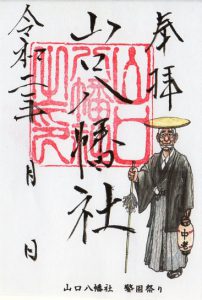 奉拝
山口八幡社
令和二年 月 日
山口
八幡
之印
山口八幡社 警固祭り